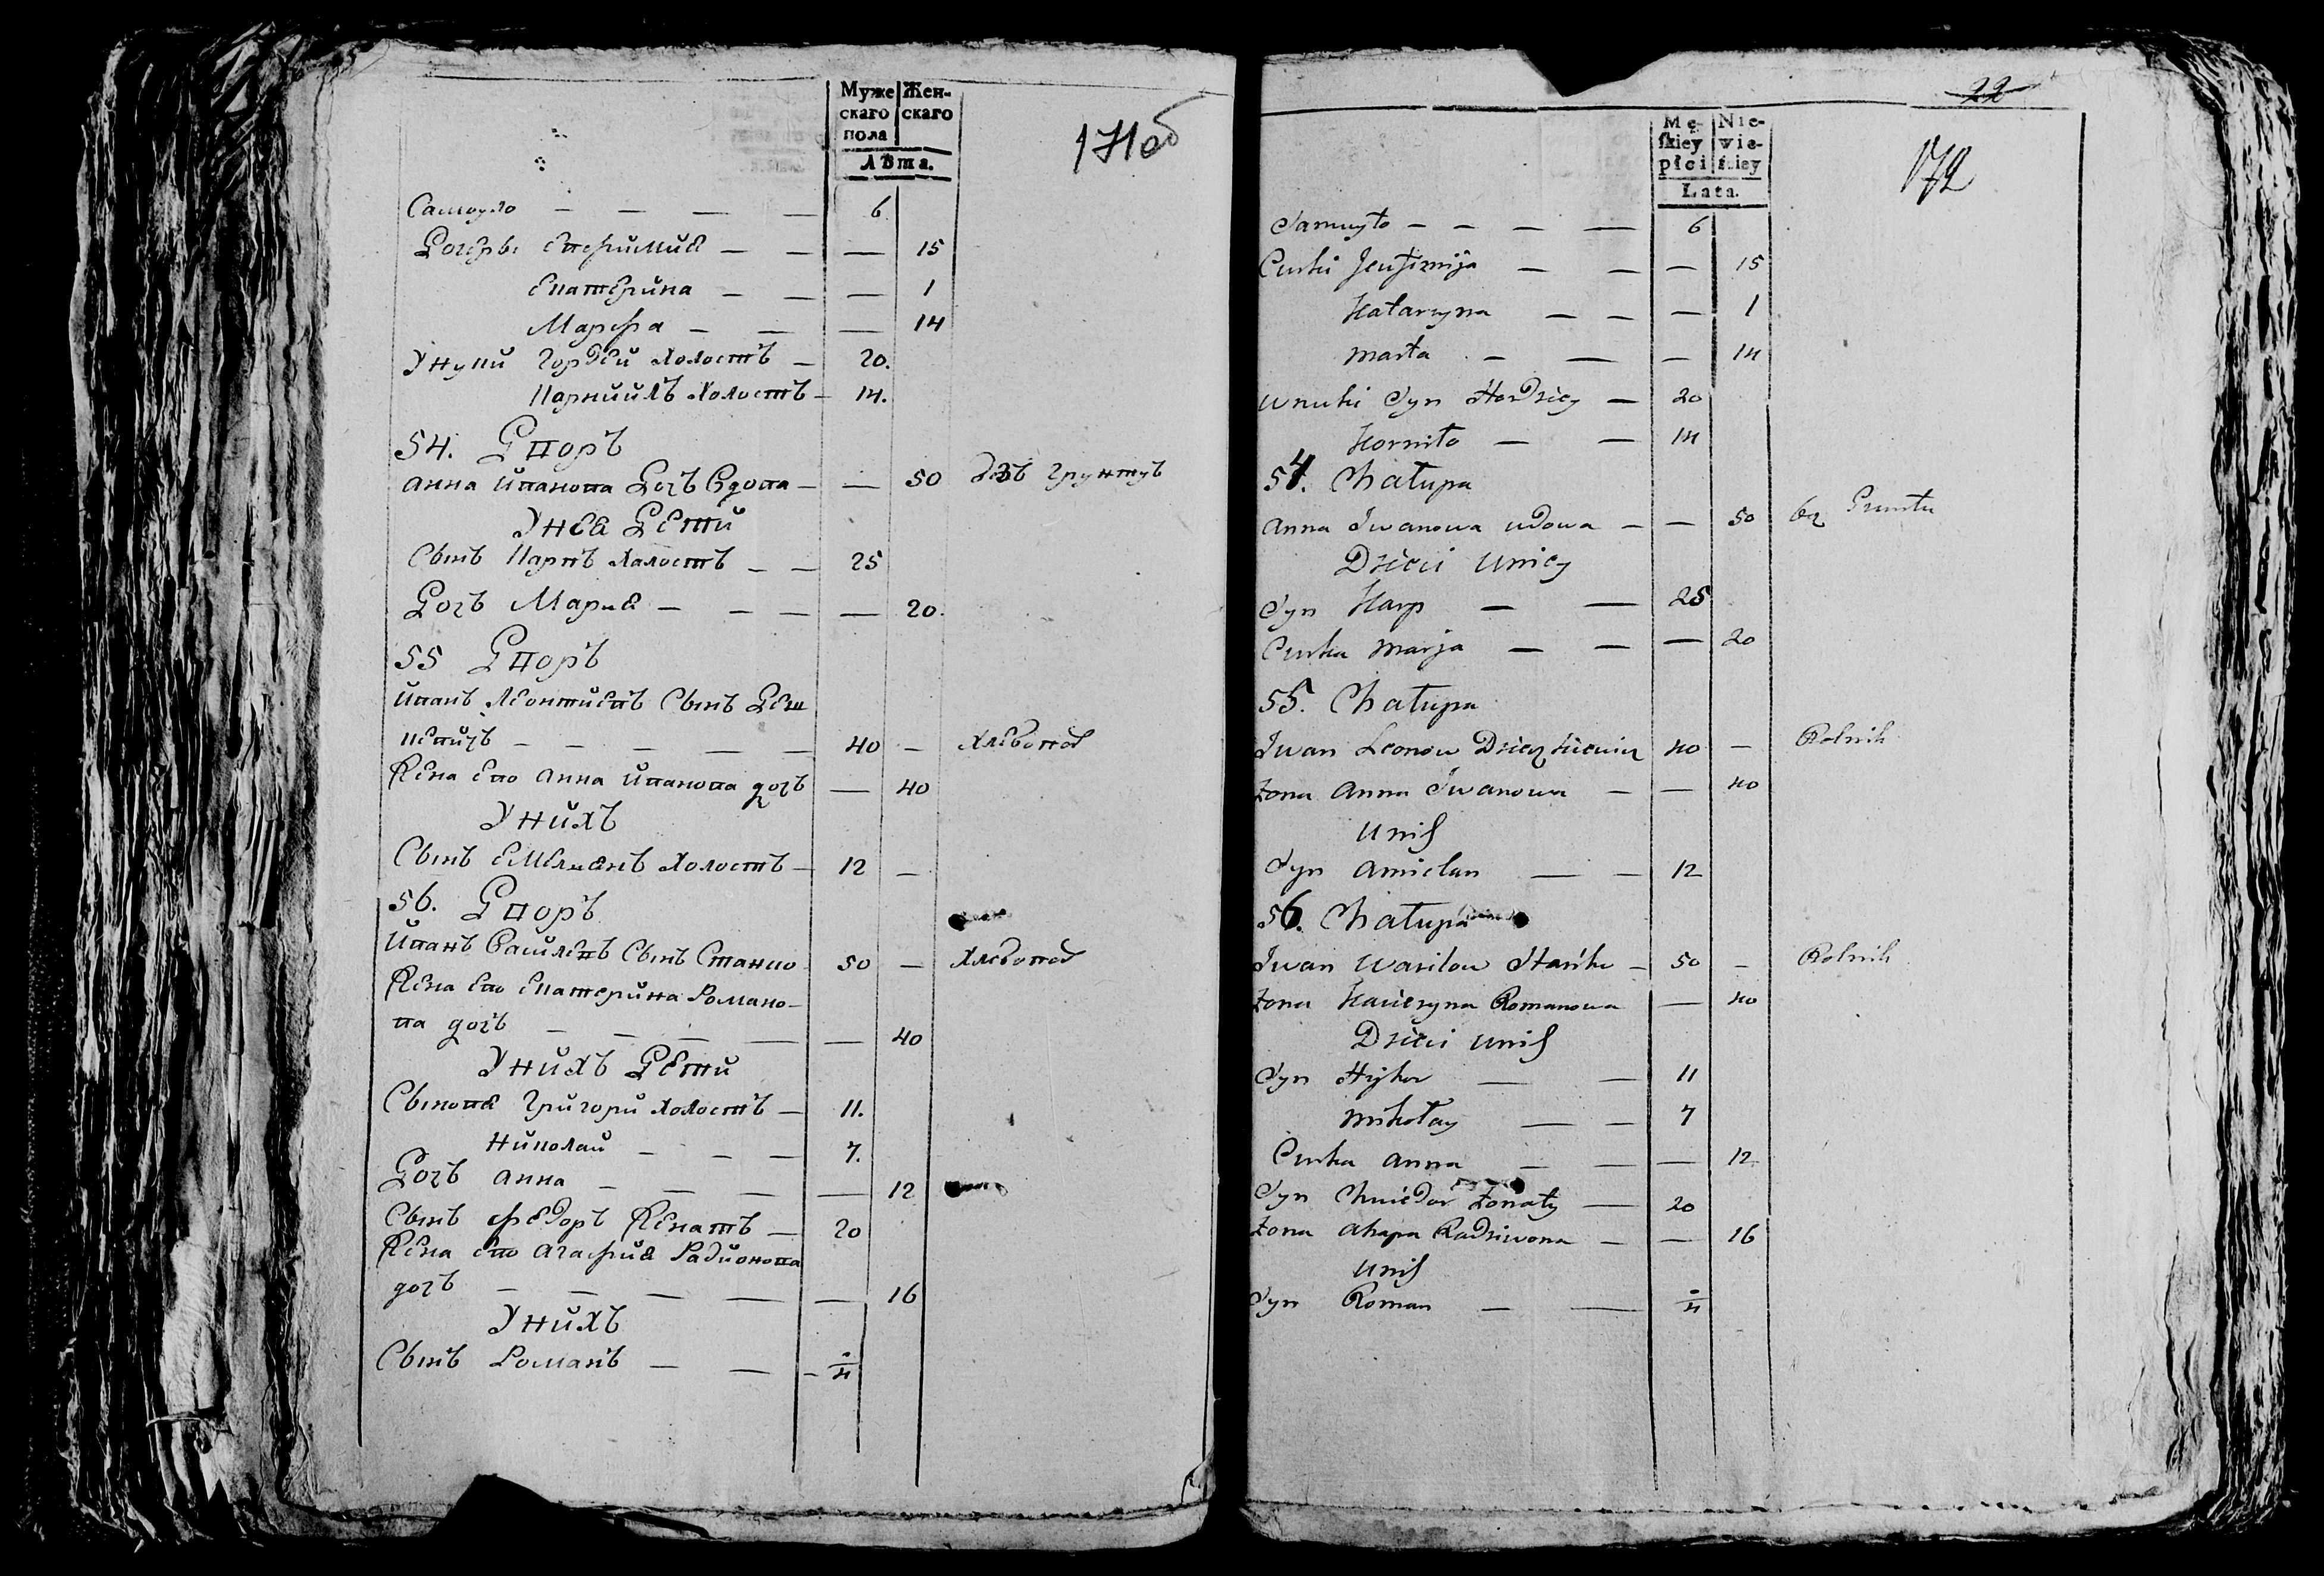 Муже Жен-
скаго скаго
пола
Лѣта.
171об
Самуло — — — — 6
Дочерь Евфимия — — — 15
Екатерина — — — 1
Марфа — — — 14
Унуки Гордѣй холостъ — 20.
Карнийлъ холостъ — 14.
54. Дворъ
Анна Иванова дочъ вдова — — 50 безъ грунтуъ
Унея Дети
Сынъ Карпъ халостъ — — 25
Дочъ Мария — — — — 20.
55 Дворъ
Иванъ Леонтиевъ Сынъ Деш
кевичъ — — — — — 40 — хлебопаш
Жена его Анна Иванова дочъ — 40
Унихъ
Сынъ Емелиянъ холостъ — 12 —
56. Дворъ
Иванъ Василевъ Сынъ Станко 50 — хлебопаш
Жена его Екатерина Романо-
ва дочъ — — — — — 40
Унихъ Дети
Сыновя Григори холостъ — 11.
Николай — — — 7.
Дочъ Анна — — — — 12
Сынъ Федоръ Женатъ — 20
Жена его Агафия Радионова
дочъ — — — — — 16
Унихъ
Сынъ Романъ — — -
22
Mę- Nie-
ſkiey wie-
płci ſkiey
Lata.
172
Samuyło — — — — 6
Curki Jeufimija — — — 15
Katarzyna — — — 1
Marta — — — 14
Wnuki Syn Hordziey — 20
Korniło — — 14
54. Chałupa
Anna Iwanowa wdowa — — 50 bez Gruntu
Dzieci Uniey
Syn Karp — — 25
Curka Marja — — — 20
55. Chałupa
Iwan Leonow Dzieszkiewicz 40 — Rolnik
Żona Anna Iwanowa — — 40
Unih
Syn Amielan — — 12
56. Chałupa
Iwan Wasilow Stańko — 50 — Rolnik
Żona Kacieryna Romanowa — 40
Dzieci Unih
Syn Hryhor — — 11
Mikołay — — 7
Curka Anna — — — 12
Syn Chwiedor Żonaty — 20
Żona Ahapa Radziwona — — 16
Unih
Syn Roman — —